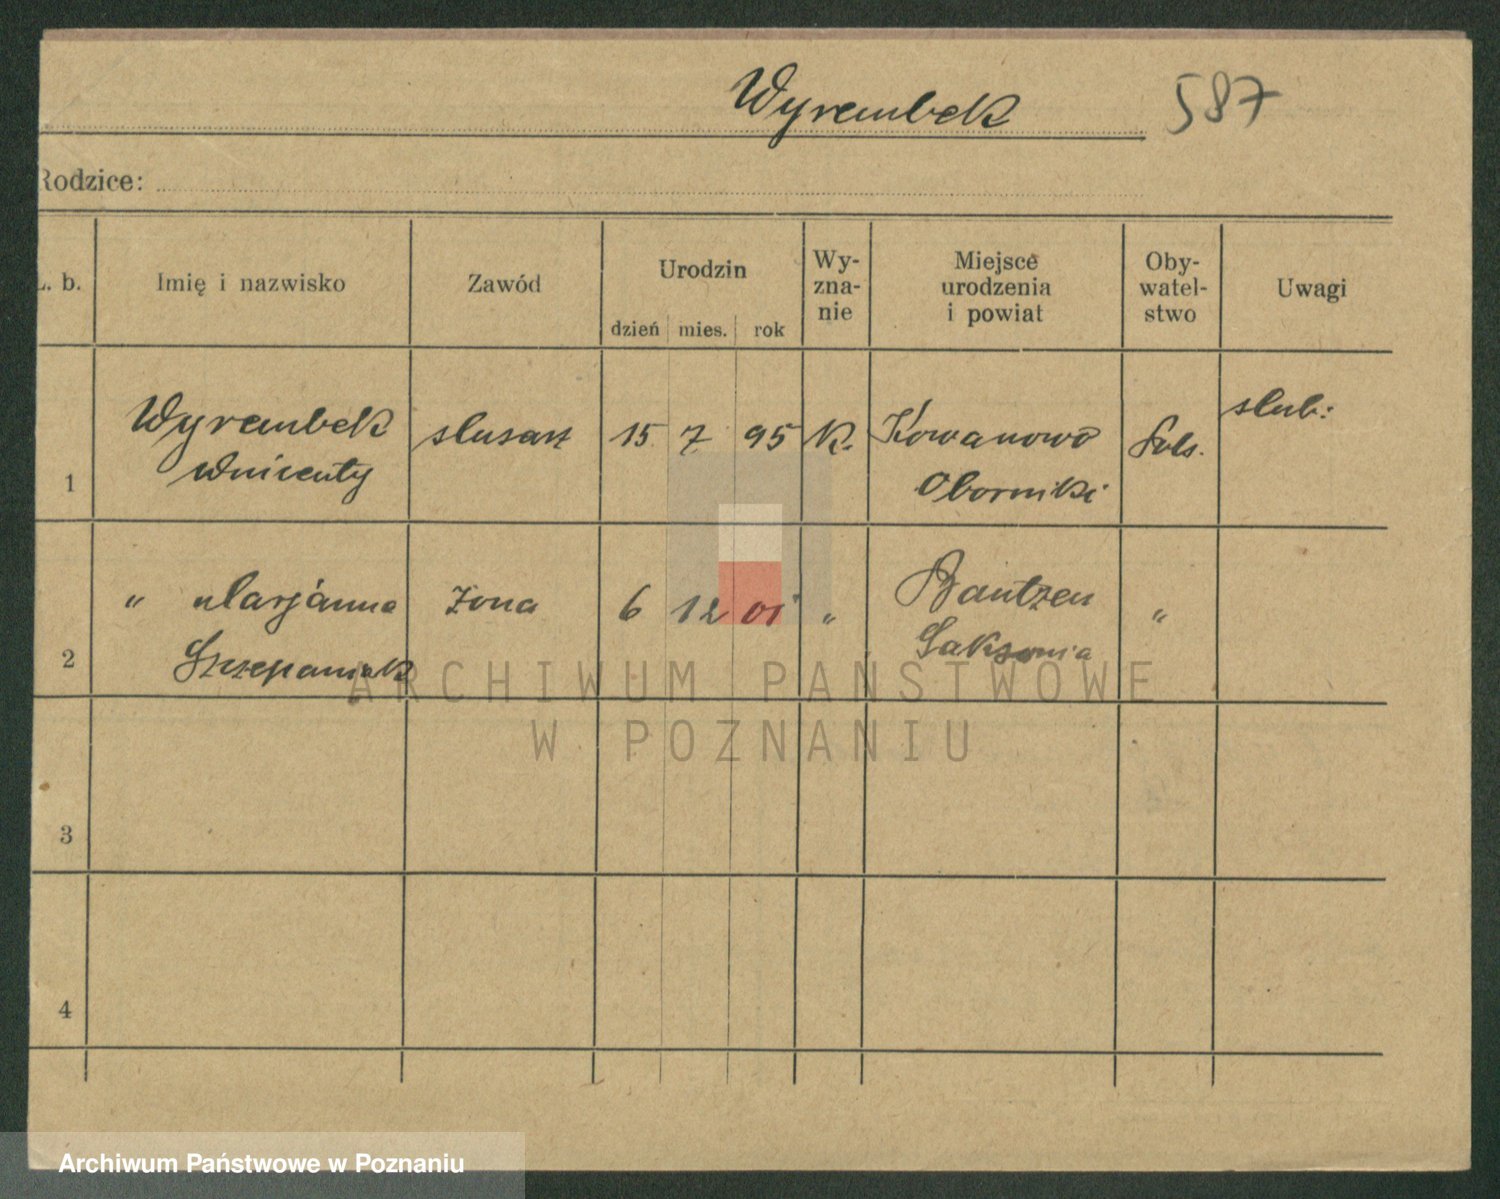 Wyrembek 587
Rodzice:
L. b. Imię i nazwisko Zawód Urodzin dzień mies. rok Wy-zna-nie Miejsce urodzenia i powiat Oby-watel-stwo Uwagi
1 Wyrembek ślusarz 15 7 95 K. Kowanowo Pols. ślub:
Wincenty Oborniki
2 " Marjanna żona 6 12 01 " Bautzen "
Szczepaniak Saksonia
3
4
ARCHIWUM PAŃSTWOWE
W POZNANIU
Archiwum Państwowe w Poznaniu